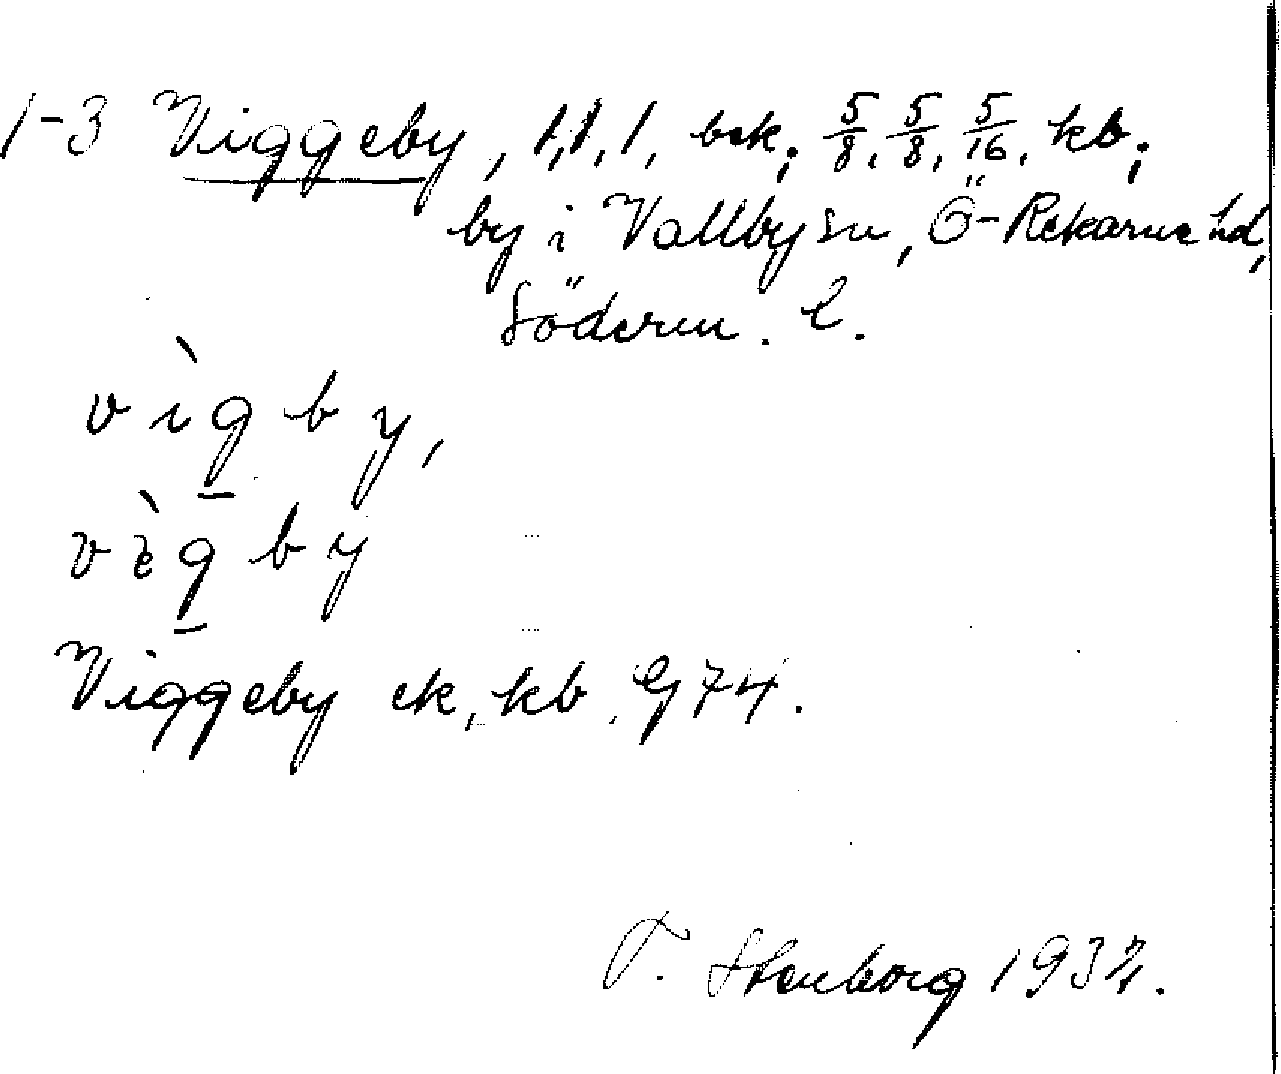 1-3 Viggeby, 1, 1, 1, bsk; 5/8, 5/8, 5/16, kb;
by i Vallby sn, Ö-Rekarne hd,
Söderm. l.
vìg̱by,
vèg̱by
Viggeby ek, kb, G74.
T. Stenborg 1932.